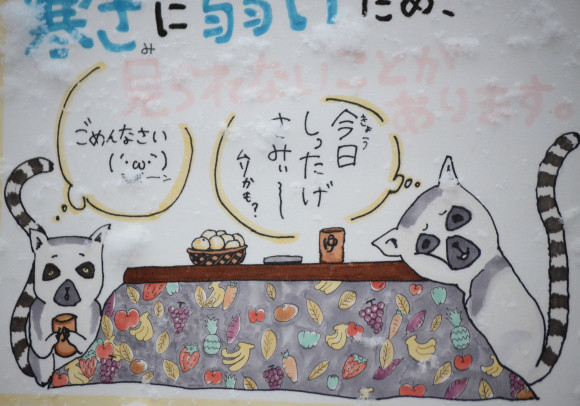 寒さに弱いため、
み
見られないことが
あります。
ごめんなさい
(´･ω･`)
ショボーン
きょう
今日
しったげ
さみぃ～
ムリかも?
ゆ